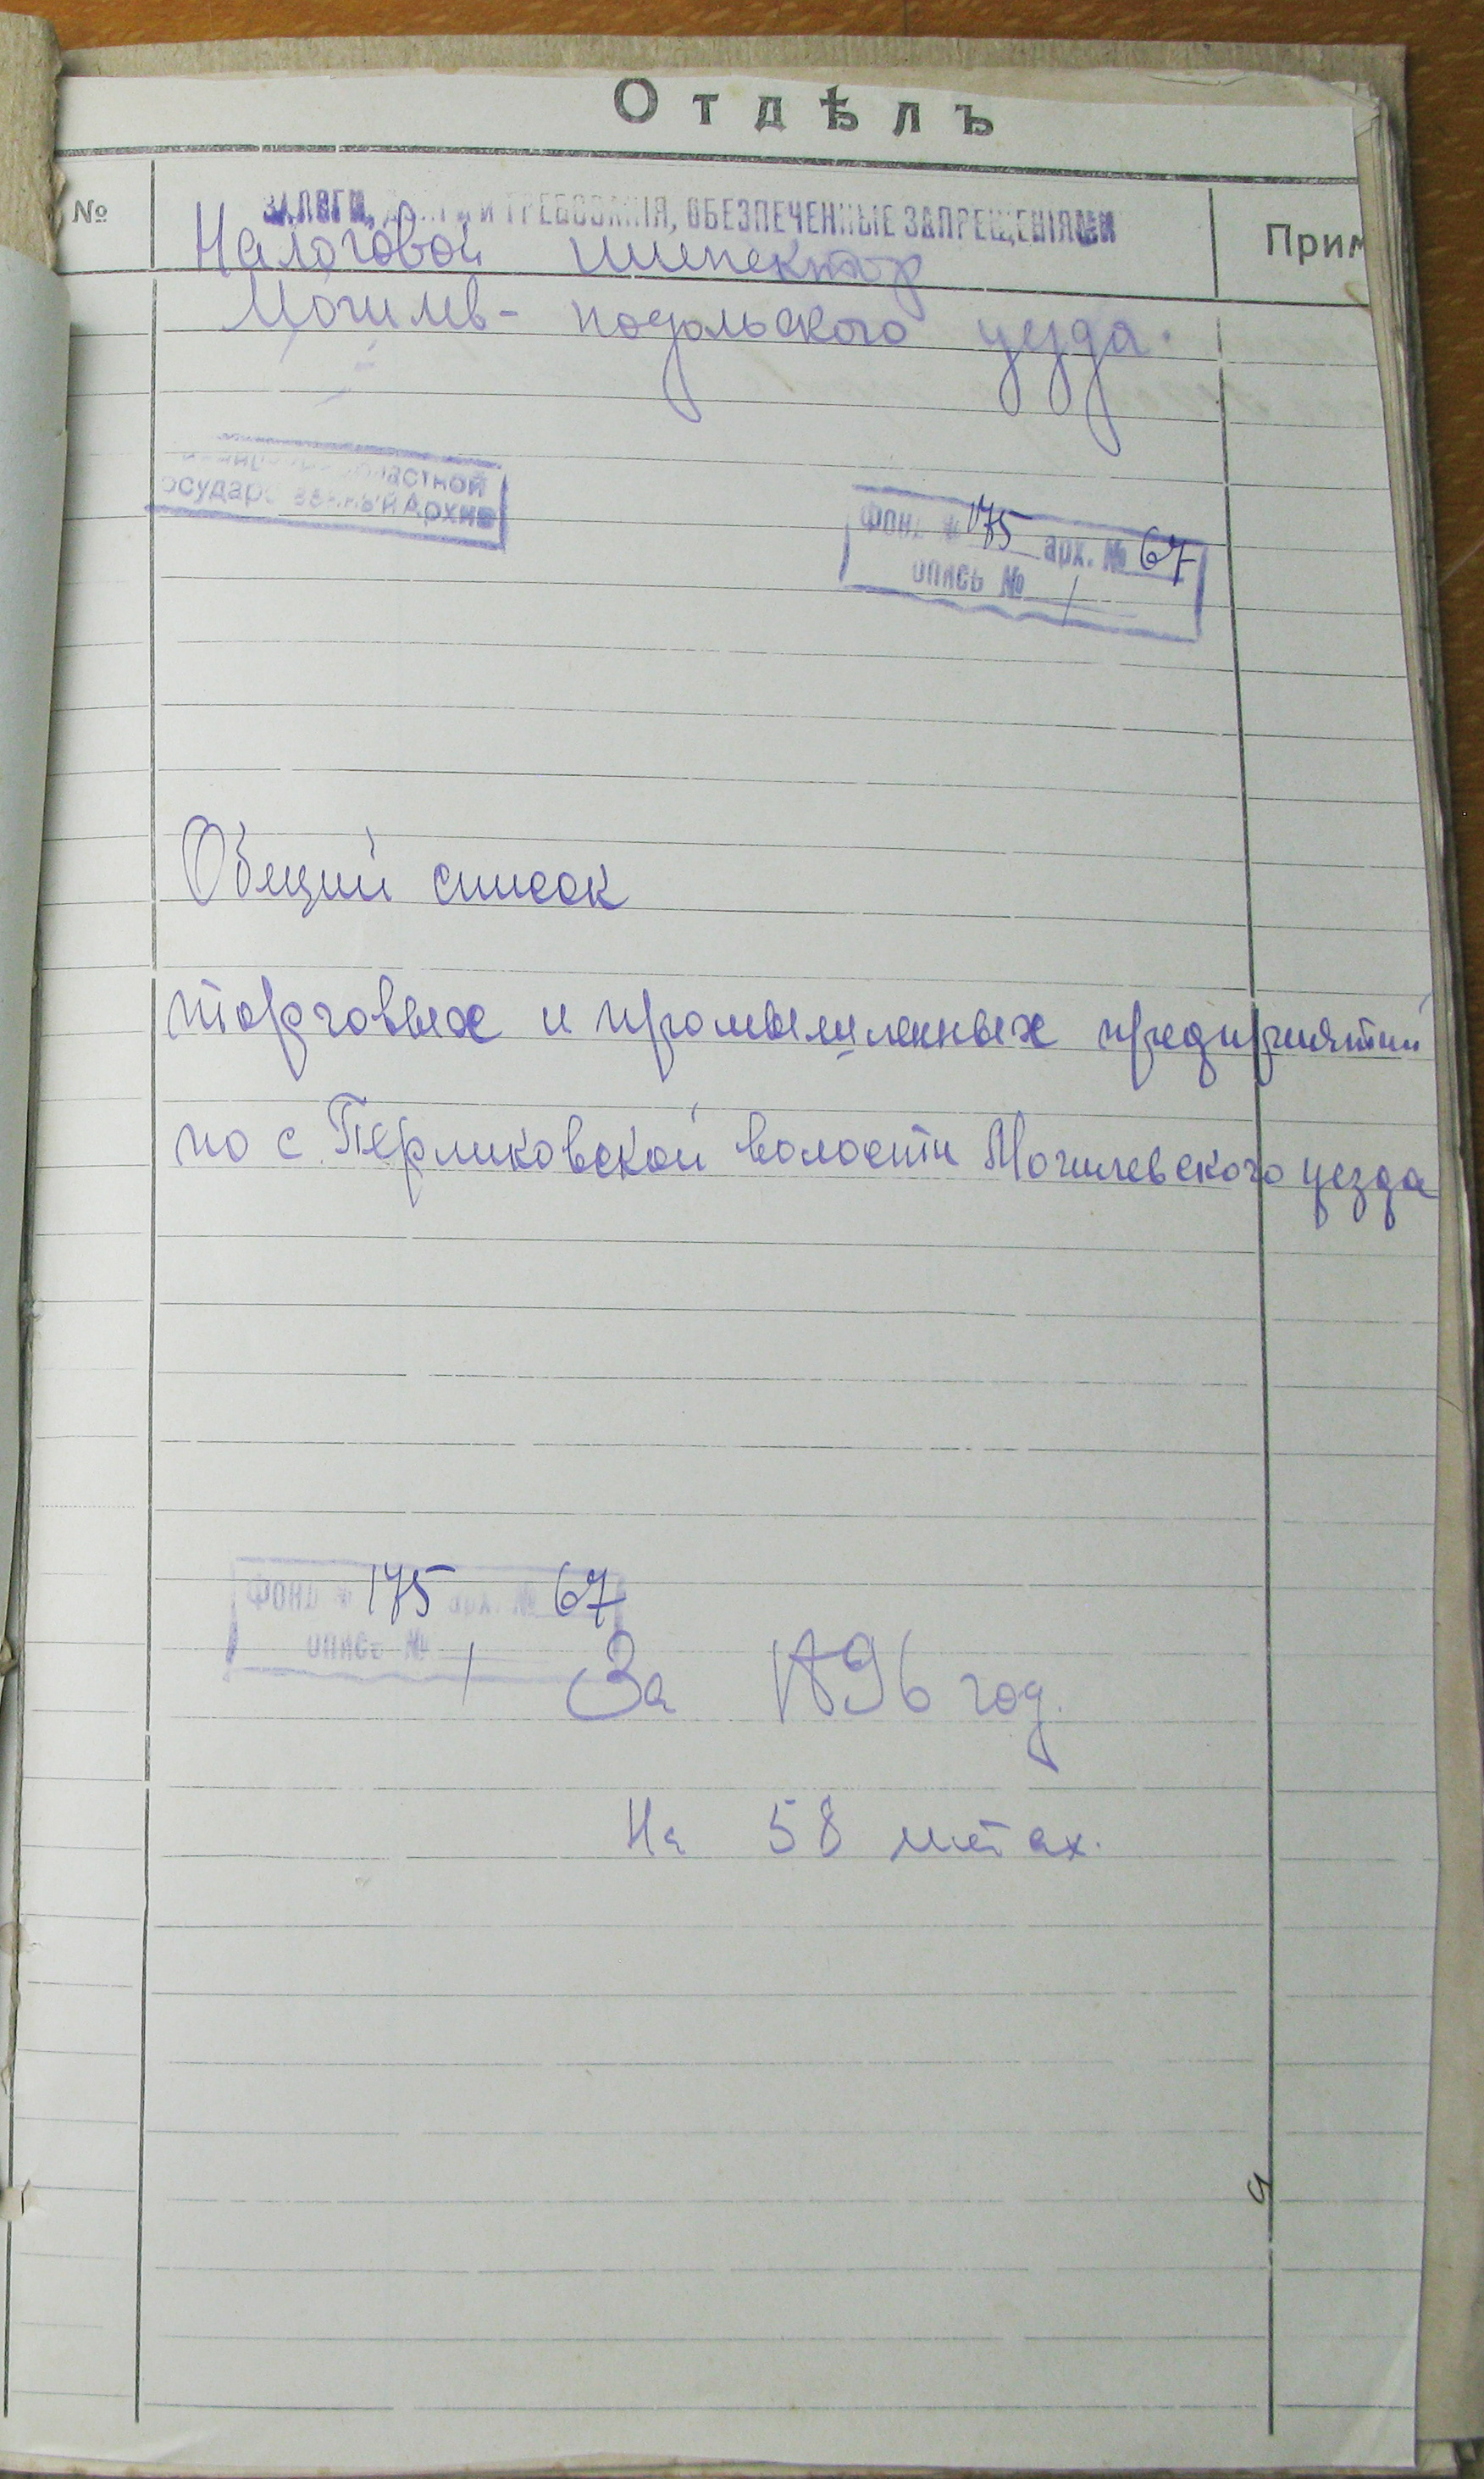 Отдѣлъ
№
ЗАЛОГИ, И ТРЕБОВАНІЯ, ОБЕЗПЕЧЕННЫЕ ЗАПРЕЩЕНІЯМИ
Прим
Налоговой инспектор
Могилев-подольского уезда.
областной
осударственный Архив
Фонд № 175 арх. № 67
опись № 1
Общий список
торговых и промышленных предприятий
по с. Перликовской волости Могилевского уезда
Фонд № 175 арх. № 67
опись № 1
За 1896 год.
На 58 листах.